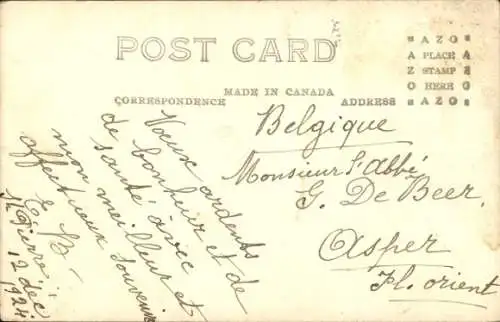 POST CARD
AZO
A PLACE A
Z STAMP Z
O HERE O
AZO
MADE IN CANADA
CORRESPONDENCE
ADDRESS
Voeux ardents
de bonheur et de
santé avec
mon meilleur et
affectueux souvenir
E. B.
St Pierre
12 déc
1924
Belgique
Monsieur l'abbé
G. De Beer
Asper
Fl. orient